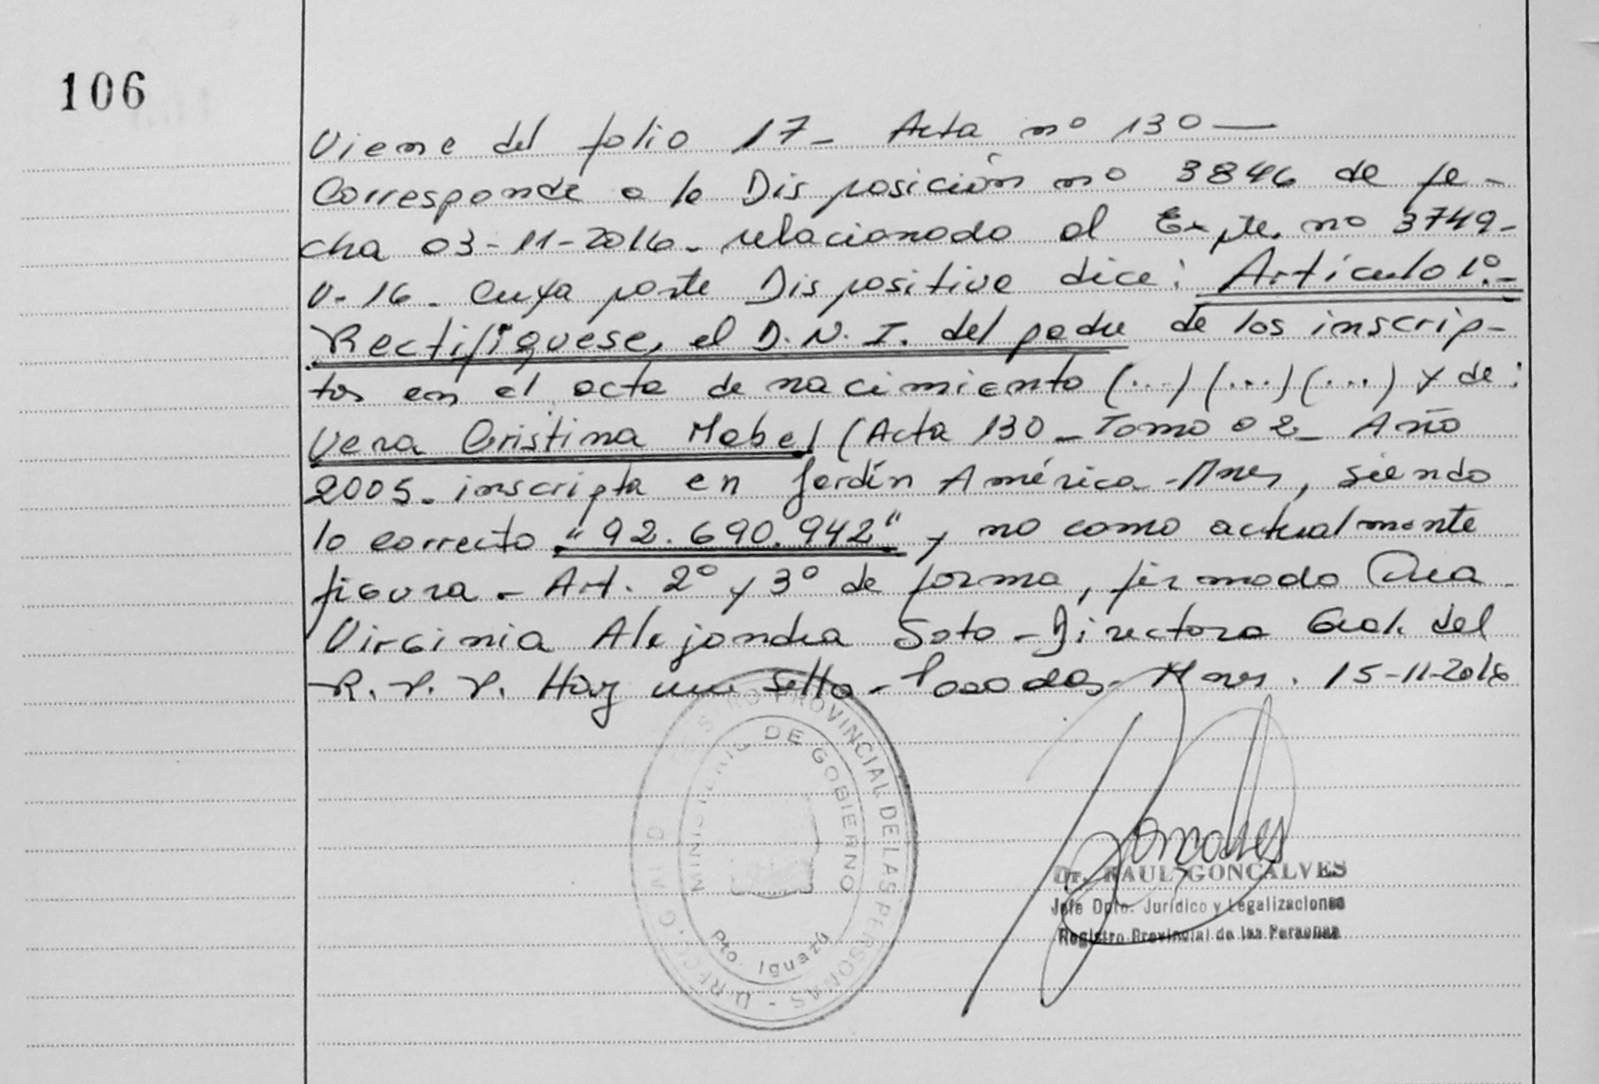 106
Viene del folio 17- Acta nº 130 —
Corresponde a la Disposición nº 3846 de fe-
cha 03-11-2016- relacionado al Expte. nº 3749-
V-16- Cuya parte Dispositiva dice: Artículo 1º.-
Rectifíquese, el D.N.I. del padre de los inscrip-
tos en el acta de nacimiento (...) (...) (...) y de:
Vera Cristina Mabel (Acta 130 - Tomo 02 - Año
2005- inscripta en Jardín América - Mnes, siendo
lo correcto "92.690.942" y no como actualmente
figura - Art. 2º y 3º de forma, firmado Dra
Virginia Alejandra Soto - Directora Gral. del
R.P.P. Hay un sello - Posadas - Mnes. 15-11-2016
DIRECC. G. AL D REGISTRO PROVINCIAL DE LAS PERSONAS -
MINISTERIO DE GOBIERNO
Pto. Iguazú
Goncalves
Dr. RAUL GONCALVES
Jefe Dpto. Jurídico y Legalizaciones
Registro Provincial de las Personas